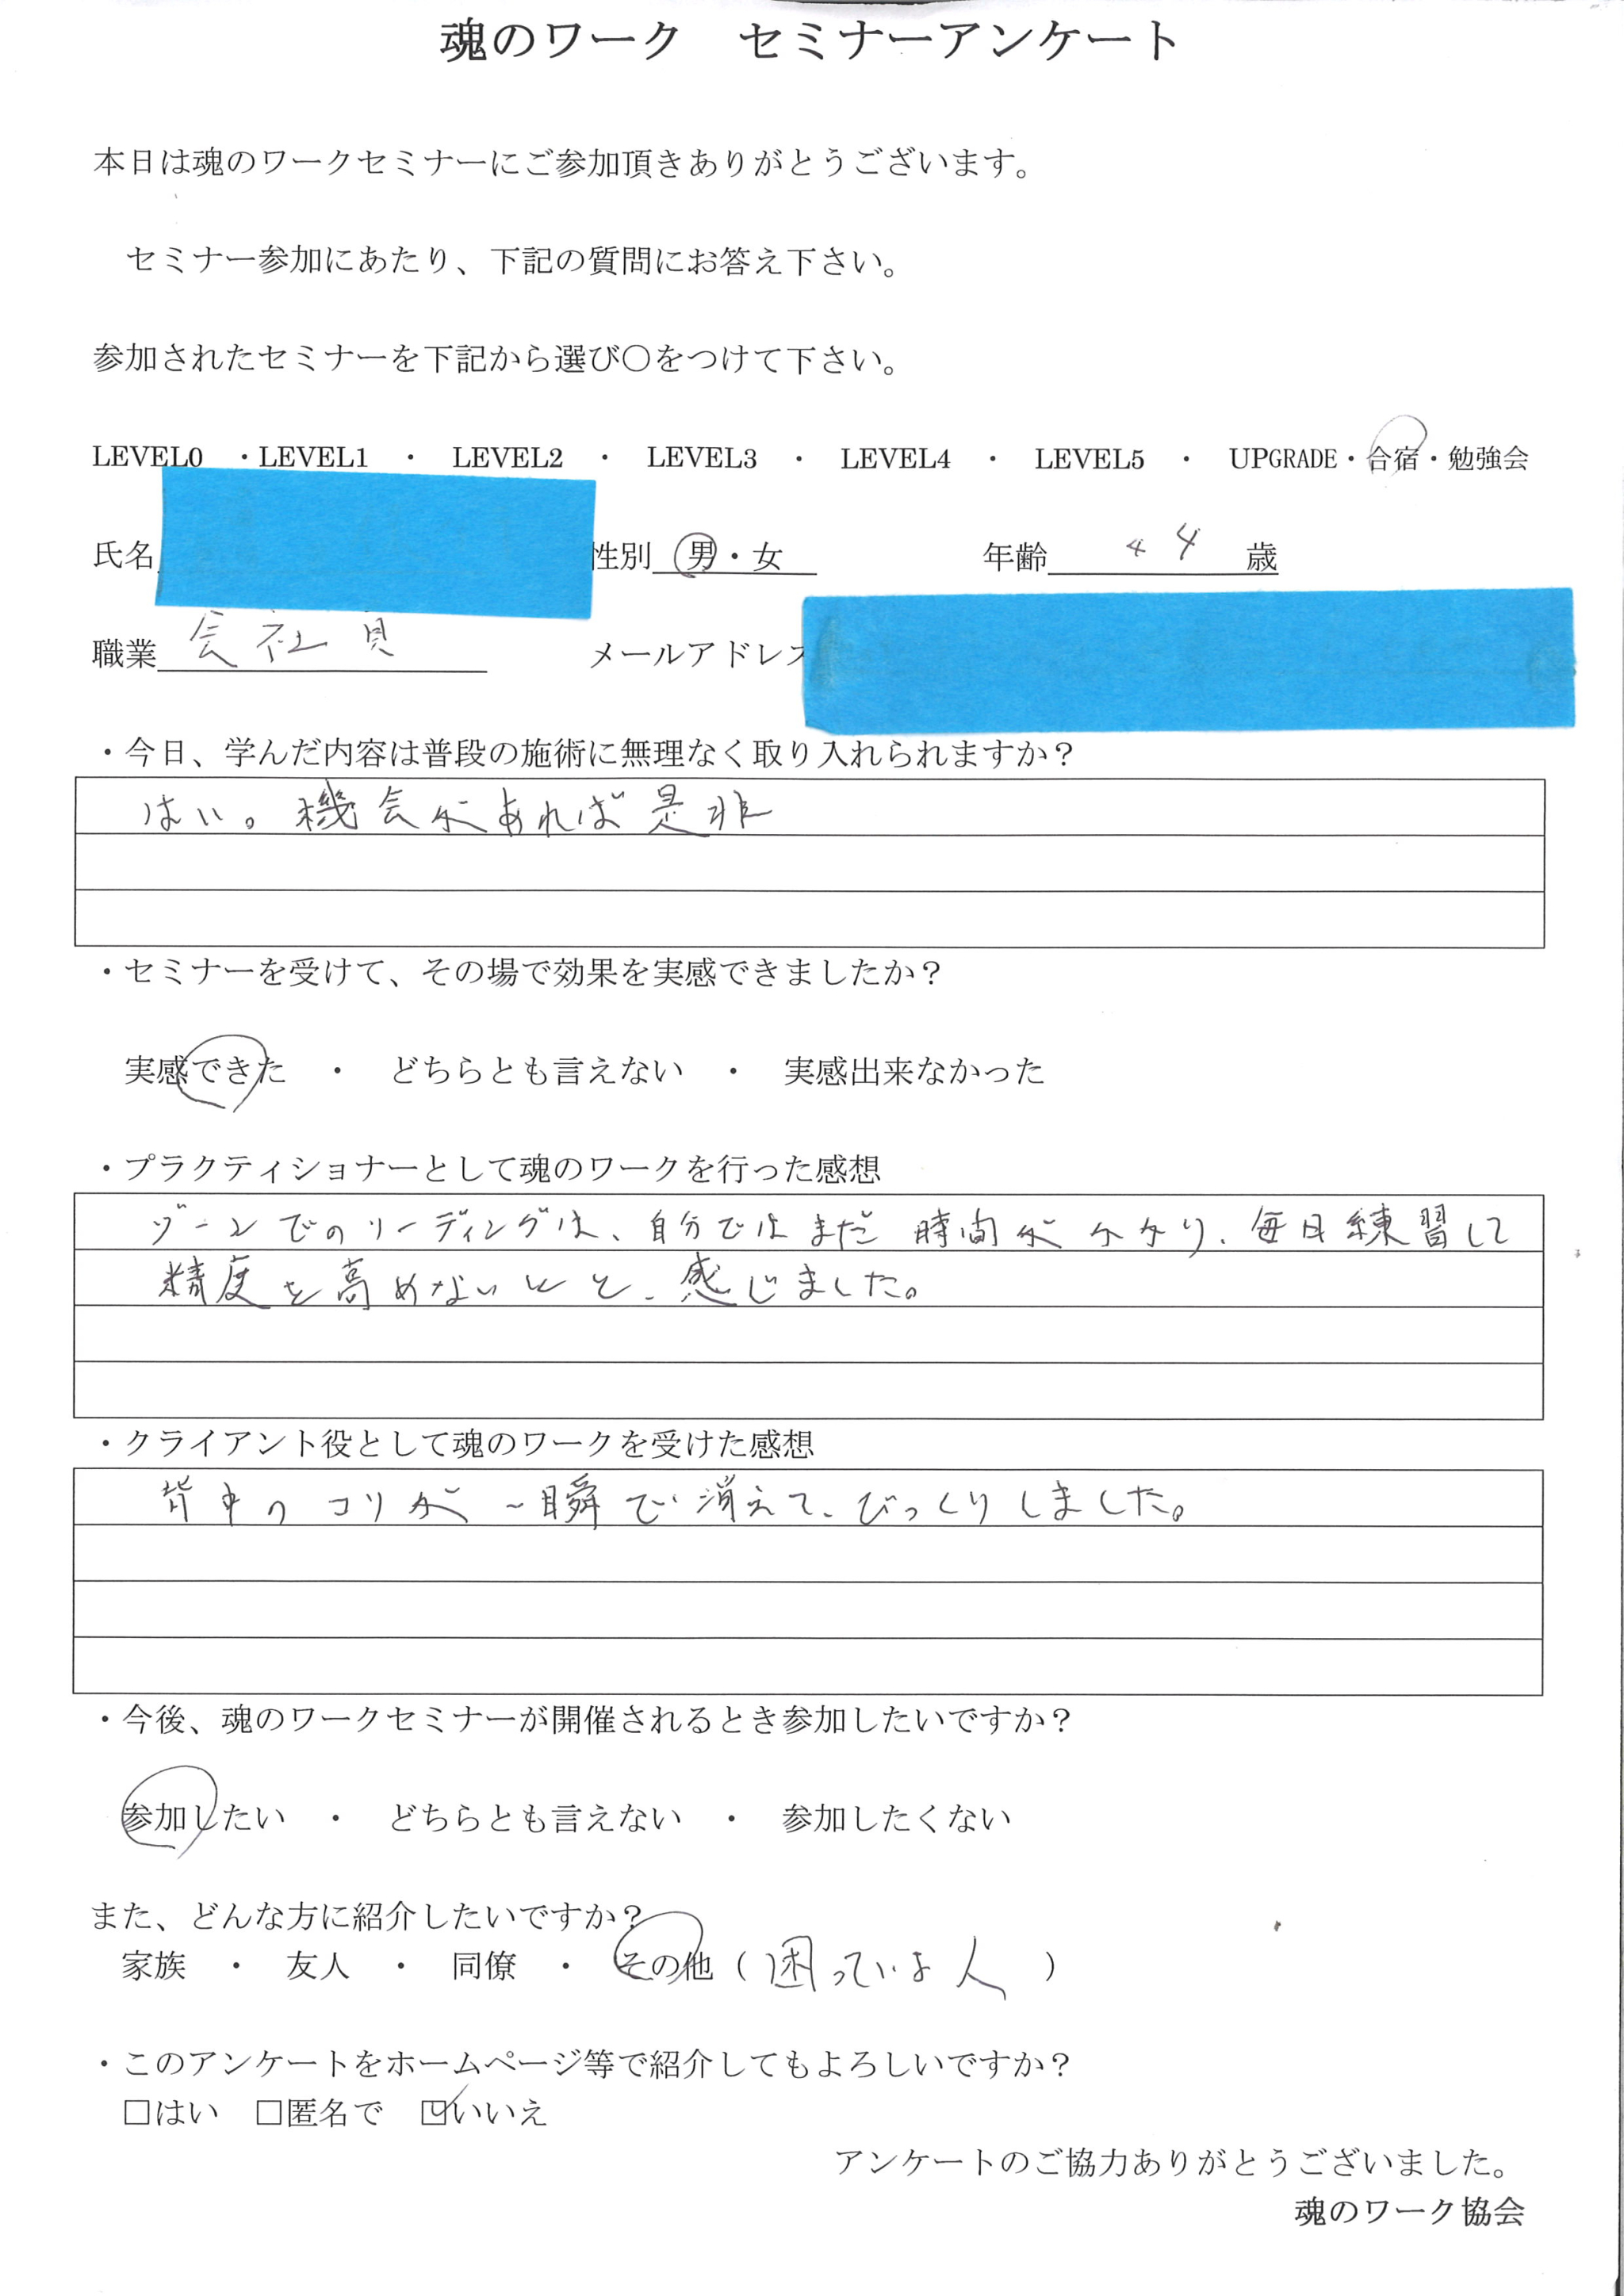 魂のワーク　セミナーアンケート
本日は魂のワークセミナーにご参加頂きありがとうございます。
セミナー参加にあたり、下記の質問にお答え下さい。
参加されたセミナーを下記から選び〇をつけて下さい。
LEVEL0　・LEVEL1　・　LEVEL2　・　LEVEL3　・　LEVEL4　・　LEVEL5　・　UPGRADE・合宿・勉強会
氏名　性別　男・女　年齢　44　歳
職業　会社員　メールアドレス
・今日、学んだ内容は普段の施術に無理なく取り入れられますか？
はい。機会があれば是非
・セミナーを受けて、その場で効果を実感できましたか？
実感できた　・　どちらとも言えない　・　実感出来なかった
・プラクティショナーとして魂のワークを行った感想
ゾーンでのリーディングは、自分ではまだ時間がかかり、毎日練習して
精度を高めないとと、感じました。
・クライアント役として魂のワークを受けた感想
背中のコリが一瞬で消えて、びっくりしました。
・今後、魂のワークセミナーが開催されるとき参加したいですか？
参加したい　・　どちらとも言えない　・　参加したくない
また、どんな方に紹介したいですか？
家族　・　友人　・　同僚　・　その他（困っている人　）
・このアンケートをホームページ等で紹介してもよろしいですか？
□はい　□匿名で　☑いいえ
アンケートのご協力ありがとうございました。
魂のワーク協会